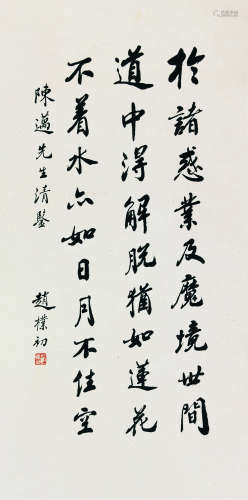 於諸惑業及魔境世間
道中得解脫猶如蓮花
不着水亦如日月不住空
陳邁先生清鑒
趙樸初